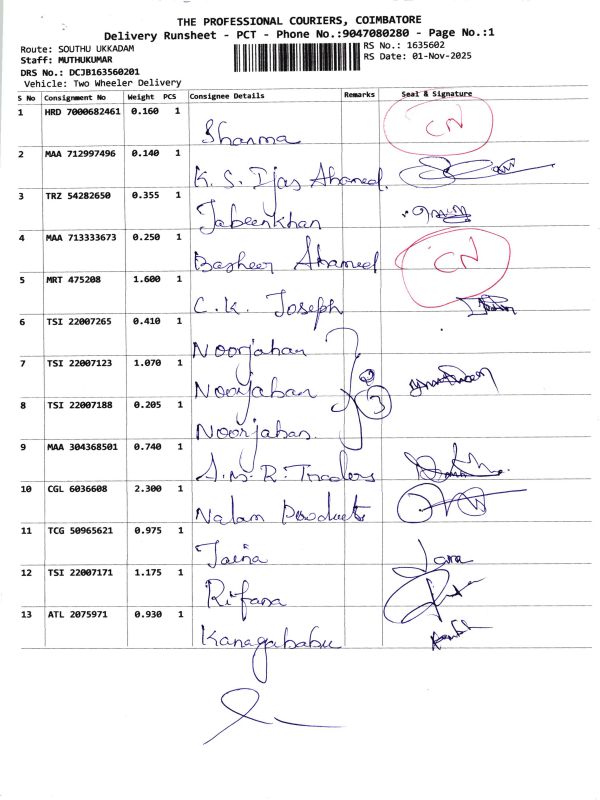 THE PROFESSIONAL COURIERS, COIMBATORE
Delivery Runsheet - PCT - Phone No.:9047080280 - Page No.:1
Route: SOUTHU UKKADAM
RS No.: 1635602
Staff: MUTHUKUMAR
RS Date: 01-Nov-2025
DRS No.: DCJB163560201
Vehicle: Two Wheeler Delivery
S No Consignment No Weight PCS Consignee Details Remarks Seal & Signature
1 HRD 7000682461 0.160 1 Sharma CN
2 MAA 712997496 0.140 1 K. S. Ijas Ahamed.
3 TRZ 54282650 0.355 1 Jabeenkhan
4 MAA 713333673 0.250 1 Basheer Ahamed CN
5 MRT 475208 1.600 1 C.K. Joseph
6 TSI 22007265 0.410 1 Noorjahan
7 TSI 22007123 1.070 1 Noorjahan 3
8 TSI 22007188 0.205 1 Noorjahan.
9 MAA 304368501 0.740 1 S.M.R. Traders
10 CGL 6036608 2.300 1 Nalam Products
11 TCG 50965621 0.975 1 Jaina
12 TSI 22007171 1.175 1 Rifana
13 ATL 2075971 0.930 1 Kanagababu